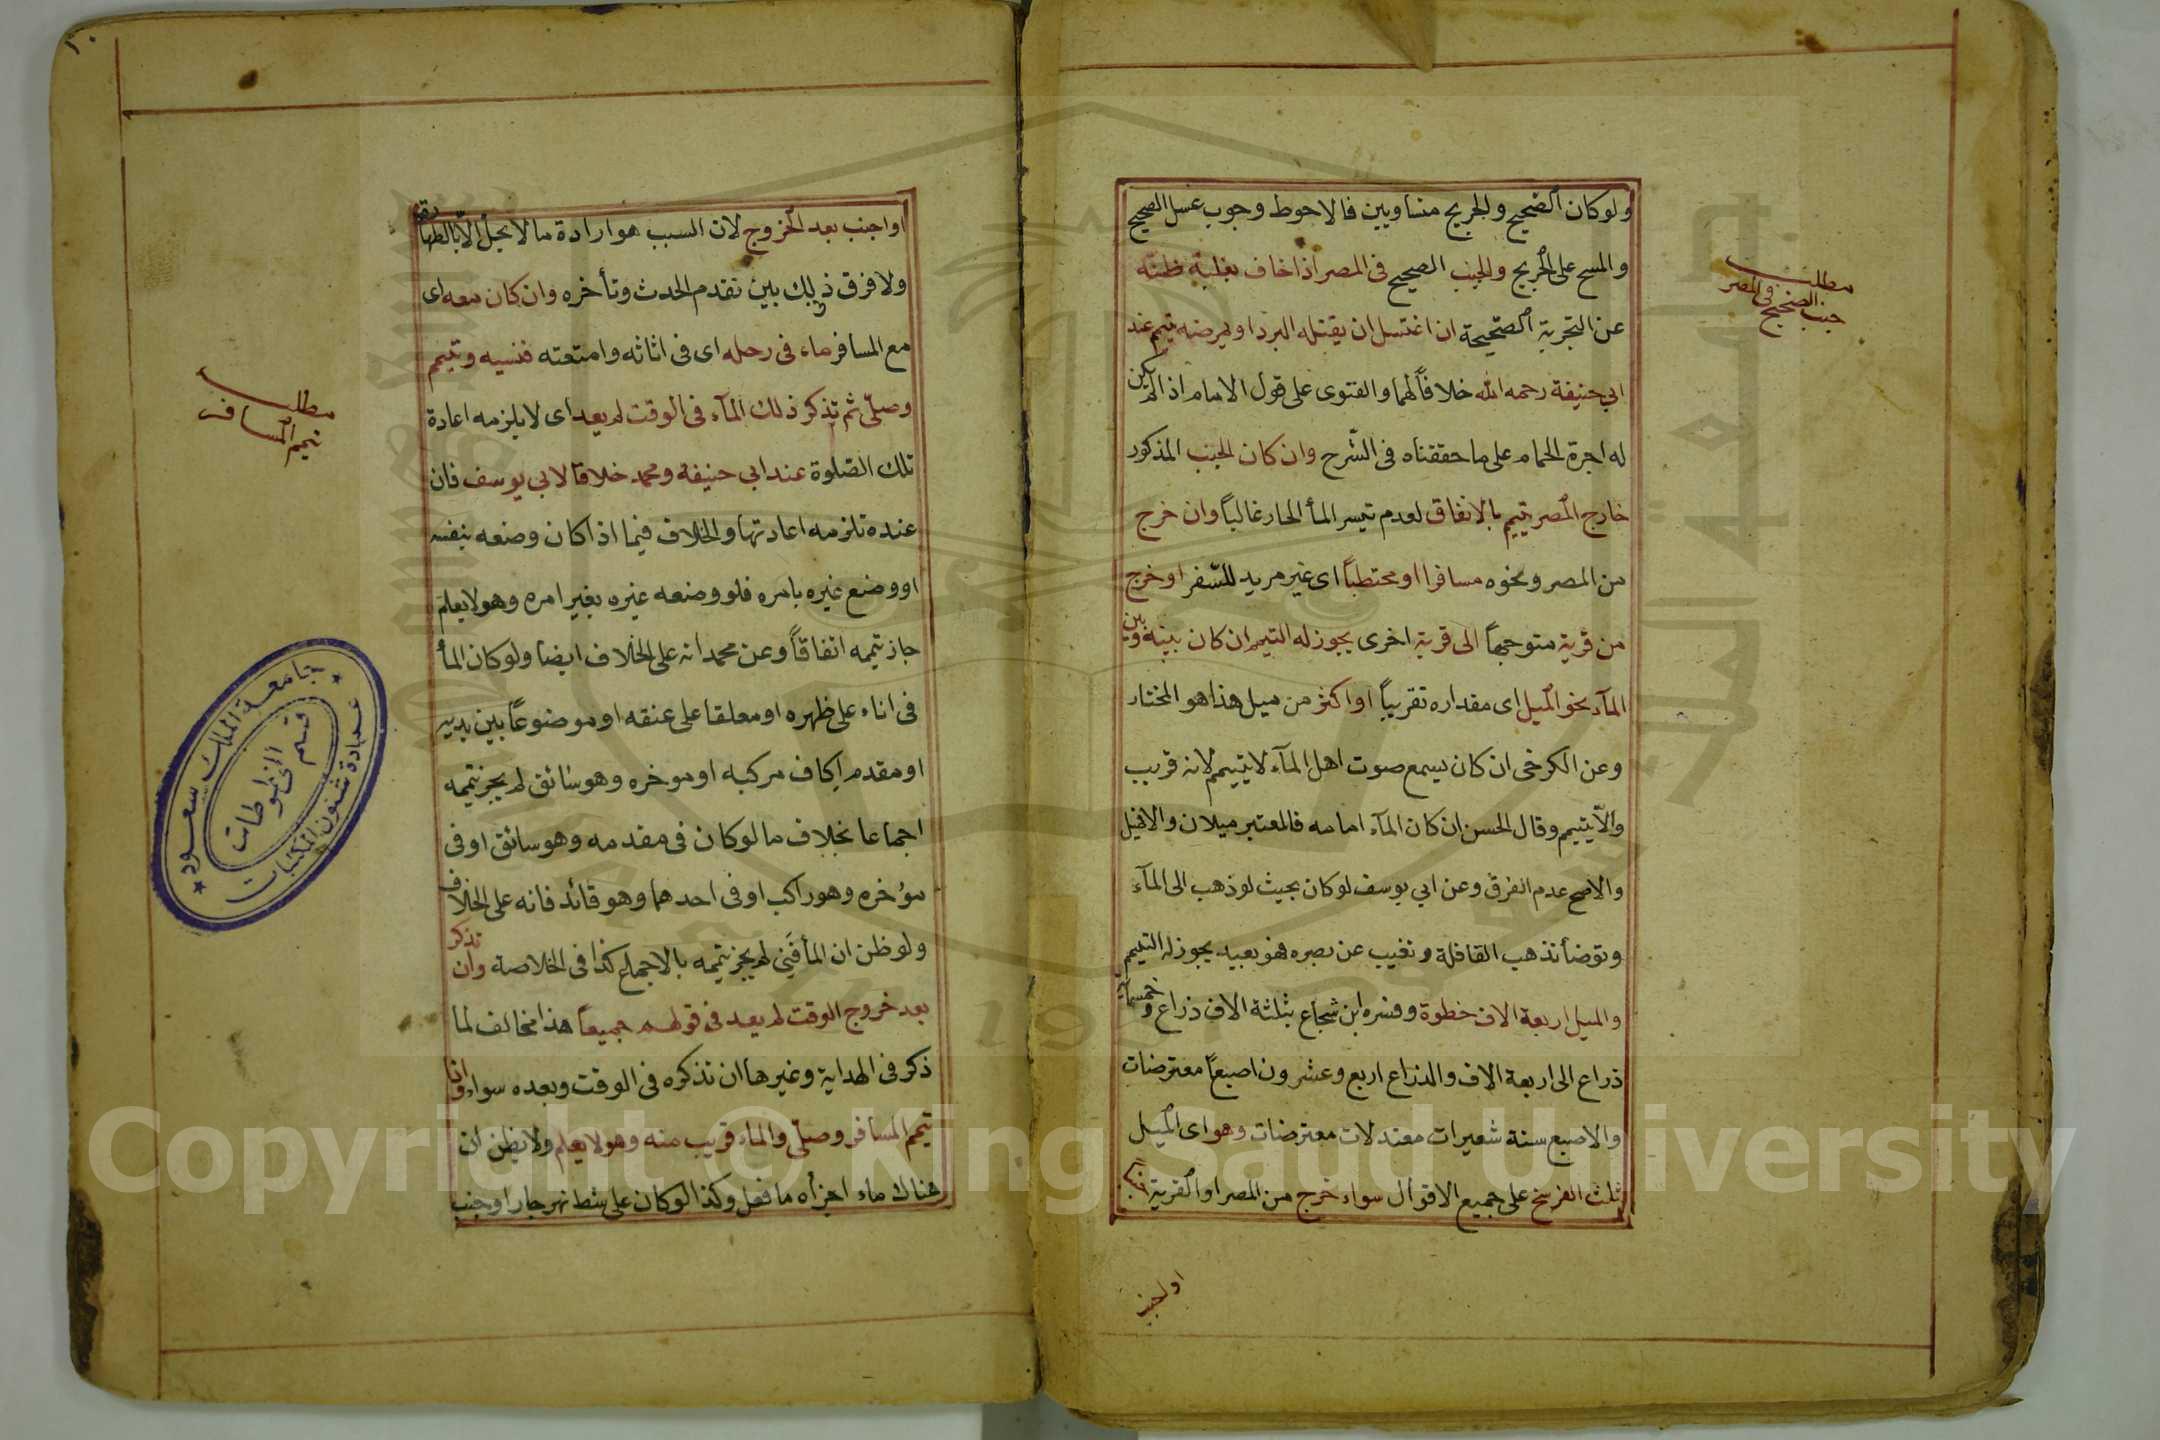 ولو كان الصحيح والجريح متساويين فالاحوط وجوب غسل الصحيح
والمسح على الجريح والجنب الصحيح فى المصر اذا خاف بغلبة ظنه
عن التجربة الصحيحة ان اغتسل ان يقتله البرد او يمرضه يتيمم عند
ابي حنيفة رحمه الله خلافاً لهما والفتوى على قول الامام اذا لم يكن
له اجرة الحمام على ما حققناه فى الشّرح وان كان الجنب المذكور
خارج المصر يتيمم بالاتفاق لعدم تيسر المأ الحار غالباً وان خرج
من المصر ونحوه مسافرا او محتطباً اى غير مريد للسّفر او خرج
من قرية متوجهاً الى قرية اخرى يجوز له التيمم ان كان بينه وبين
المآء نحو الميل اى مقداره تقريباً او اكثر من ميل هذا هو المختار
وعن الكرخى ان كان يسمع صوت اهل المآء لا يتيمم لانه قريب
والّا يتيمم وقال الحسن ان كان المآء امامه فالمعتبر ميلان والا فميل
والاصح عدم الفرق وعن ابي يوسف لو كان بحيث لو ذهب الى المآء
وتوضأ تذهب القافلة وتغيب عن بصره فهو بعيد يجوز له التيمم
والميل اربعة الاف خطوة وفسره ابن شجاع بثلثة الاف ذراع وخمسمائة
ذراع الى اربعة الاف والذراع اربع وعشرون اصبعاً معترضات
والاصبع ستة شعيرات معتدلات معترضات وهو اى الميل
ثلث الفرسخ على جميع الاقوال سواء خرج من المصر او القرية جنباً
او اجنب
مطلب
جنب الصحيح فى المصر
١٠
او اجنب بعد الخروج لان السبب هو ارادة ما لا يحل الّا بالطهارة
ولا فرق فى ذلك بين تقدم الحدث وتأخره وان كان معه اى
مع المسافر ماء فى رحله اى فى اثاثه وامتعته فنسيه وتيمم
وصلّى ثم تذكر ذلك المآء فى الوقت لم يعد اى لا يلزمه اعادة
تلك الصّلوة عند ابي حنيفة ومحمد خلافا لابي يوسف فان
عنده تلزمه اعادتها والخلاف فيما اذا كان وضعه بنفسه
او وضع غيره بامره فلو وضعه غيره بغير امره وهو لا يعلم
جاز تيممه اتفاقاً وعن محمد انه على الخلاف ايضا ولو كان المأ
فى اناء على ظهره او معلقا على عنقه او موضوعاً بين يديه
او مقدم اكاف مركبه او موخره وهو سائق لم يجز تيممه
اجماعا بخلاف ما لو كان فى مقدمه وهو سائق او فى
مؤخره وهو راكب او فى احدهما وهو قائد فانه على الخلاف
ولو ظن ان المأ فَنِيَ لم يجز تيممه بالاجماع كذا فى الخلاصة وان تذكر
بعد خروج الوقت لم يعد فى قولهم جميعاً هذا مخالف لما
ذكر فى الهداية وغيرها ان تذكره فى الوقت وبعده سواء واذا
تيمم المسافر وصلّى والماء قريب منه وهو لا يعلم ولا يظن ان
هناك ماء اجزأه ما فعل وكذا لو كان على شط نهر جار او جنب
مطلب
تيمم المسافر
جامعة الملك سعود
قسم المخطوطات
عمادة شئون المكتبات
Copyright © King Saud University